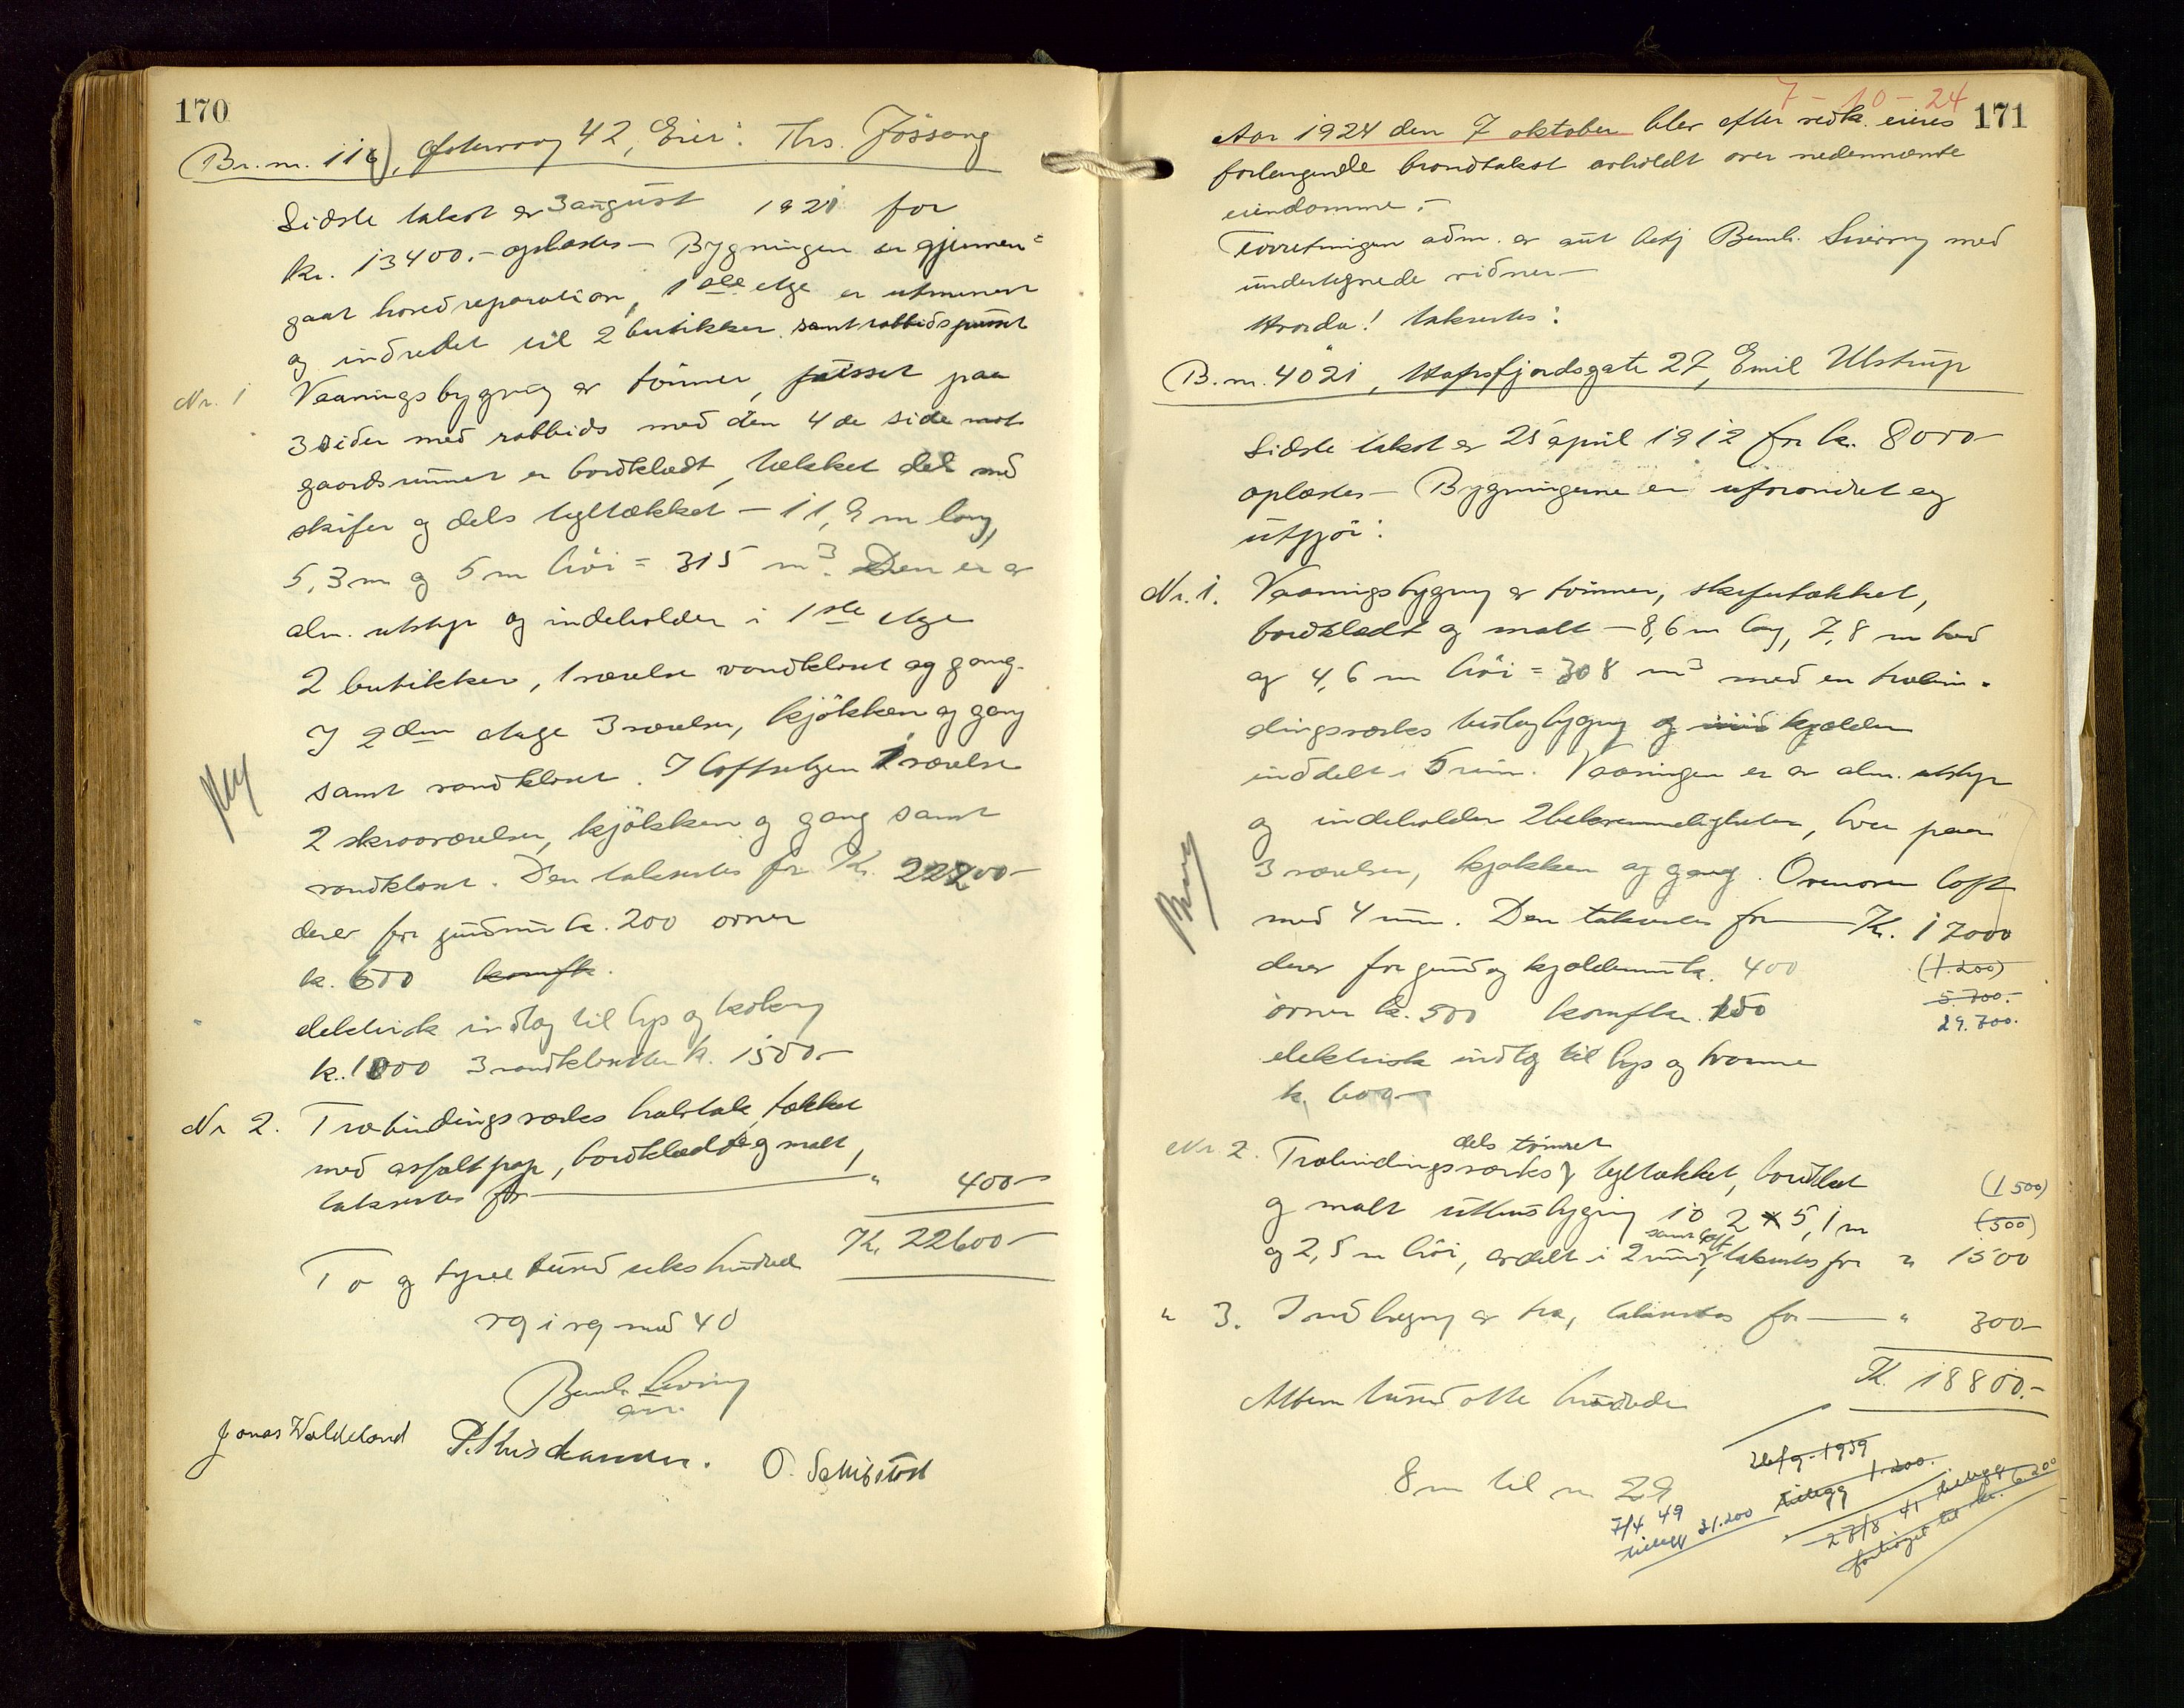 170
Br. nr. 116, Østervaag 42, Eier: Ths. Jössang
Sidste takst er 3 august 1921 for
kr. 13400.- oplæstes - Bygningen er gjennem=
gaat hovedreparation, 1ste etage er utminert
og indredet til 2 butikker samt rabbidspusset
Nr. 1 Vaaningsbygning av tømmer, pusset paa
3 sider med rabbids med den 4de side mot
gaardsrummet er bordklædt, tækket dels med
skifer og dels tegltækket - 11,9 m lang,
5,3 m og 5 m høi = 315 m3. Den er av
alm. utstyr og indeholder i 1ste etage
2 butikker, 1 værelse vandkloset og gang.
I 2den etage 3 værelser, kjøkken og gang
samt vandkloset. I loftsetagen 1 værelse
2 skraaværelser, kjøkken og gang samt
vandkloset. Den takseres for Kr. 22200-
derav for grundmur kr. 200 ovner
kr. 600 komfk.
elektrisk indlæg til lys og kokning
kr. 1000 3 vandklosetter kr. 1500.-
Nr 2. Træbindingsverks halvtak, tækket
med asfaltpap, bordklædt og malt,
takseres for " 400-
Kr. 22600-
To og tyve tusind seks hundrede
vg i vg med 40
Bernh. Sivring
Jonas Waldeland P. Kristiansen. O. Sømistad
7 - 10 - 24
171
Aar 1924 den 7 oktober blev efter vedk. eieres
forlangende brandtakst avholdt over nedennævnte
eiendomme:-
Forretningen adm. av aut bestj Bernh. Sivring med
undertegnede vidner-
Hvorda! takseres:
B. nr. 4021, Hafrsfjordsgate 27, Emil Ulstrup
Sidste takst er 25 april 1912 for kr. 8000-
oplæstes- Bygningerne er uforandret og
utgjør:
Nr. 1. Vaaningsbygning av tømmer, skifertækket,
bordklædt og malt - 8,6 m lang, 7,8 m bred
og 4,6 m høi = 308 m3 med en træbin=
dingsverks tilbygning og kjælder
inddelt i 5 rum. Vaaningen er av alm. utstyr
og indeholder 2 bekvemmeligheter, hver paa
3 værelser, kjøkken og gang. Ovenover loft
med 4 rum. Den takseres for Kr. 17000
derav for grund og kjældermur kr. 400 (1.200)
ovner kr. 500 komfkr. 150 5.700.-
29.700.
elektrisk indlæg til lys og varme
kr. 600-
dels tømret
Nr. 2. Træbindingsverks, tegltækket, bordklædt (1500)
og malt uthusbygning 10,2 x 5,1 m (500)
samt loft
og 2,5 m høi, avdelt i 2 rum, takseres for " 1500
" 3. Indhegning av træ, takseres for " 300-
Kr. 18800.-
Atten tusind otte hundrede
8 m til nr. 29
26/9-1939
tillegg 1.200.
7/4 49
tillegg 21.200
27/8 41 tillegg
forhøiget til kr. 6.200